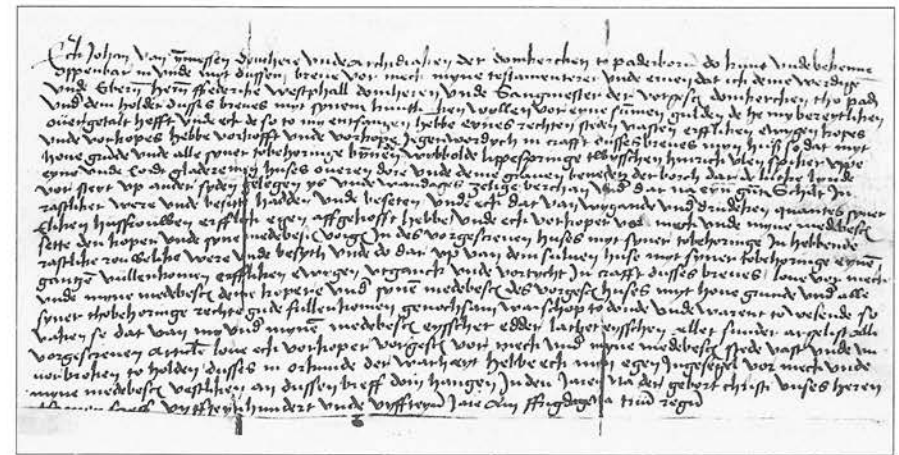 Eck Johan van ymessen domhere unde Archidiaken der domkercken te paderborn do kunt unde bekenne
oppenbar in unde myt dussen breve vor mech myne testamenterer unde einen dat ich deme werdige
unde Ebern hern ffrederike Westphall domheren unde Sangmester der vorgescr domkercken tho pad
und dem holder dusses breves myt synem willen vor eyne summen gulden de he my bereytliken
overgetalt hefft unde eck de so to my entfangen hebbe eynes rechten steden vasten erffliken ewygen kopes
unde vorkopes hebbe vorkofft unde vorkope Jegenwordych in crafft dusses breves myn huß so dat myt
hove grunde unde alle syner tobehoringe bynnen wybbolde lippespringe twysschen hinrick vlen spiker uppe
eyne unde Cordt huses overen dore unde deme graven beneden der borch dar de lutke lynde
vor steyt up ander syden gelegen ys unde wandages zelige berchan und dar na Schall In
rastliker were unde besitte hadden unde beseten unde eck dat van wygande und drudeken quantes syner
Eliken hussfrouwen erfflick egen affgekofft hebbe unde eck vorkoper vor mech unde myne medebescr
sette den koper unde syne medebescr vorg In des vorgescreven huses myt syner tobehoringe In hebbende
rastlike rouwelike were unde besyth unde do dar up van dem sulven huse myt syner tobehoringe eynen
gantzen vullenkomen erffliken ewygen utganck unde vortycht In crafft dusses breves love vor mech
unde myne medebescr deme kopere und synen medebescr des vorgescr huses myt hove grunde und alle
syner thobehoringe rechte gude fullenkomen genochsam warschop to donde unde warent to wesende so
vaken se dat van my und mynen medebescr eysschet edder lathet eysschen allet sunder argelist alle
vorgescreven Artikele love eck vorkoper vorgescr vor mech und myne medebescr stede vast unde un
vorbroken to holden dusses in orkunde der warheyt hebbe eck myn egen Ingesegel vor mech unde
myne medebescr vestliken an dussen breff don hangen In den Jaren na der gebort christi unses heren
vyffteyn hundert unde vyffteyn Jare Am ffrigdage trium regum